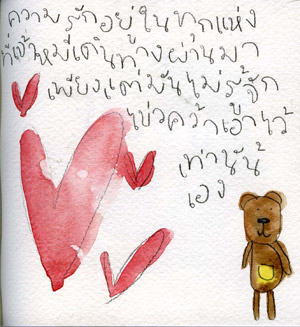 ความรักอยู่ในทุกแห่ง
ที่เจ้าหมีเดินทางผ่านมา
เพียงแต่มันไม่รู้จัก
ไขว่คว้าเอาไว้
เท่านั้น
เอง